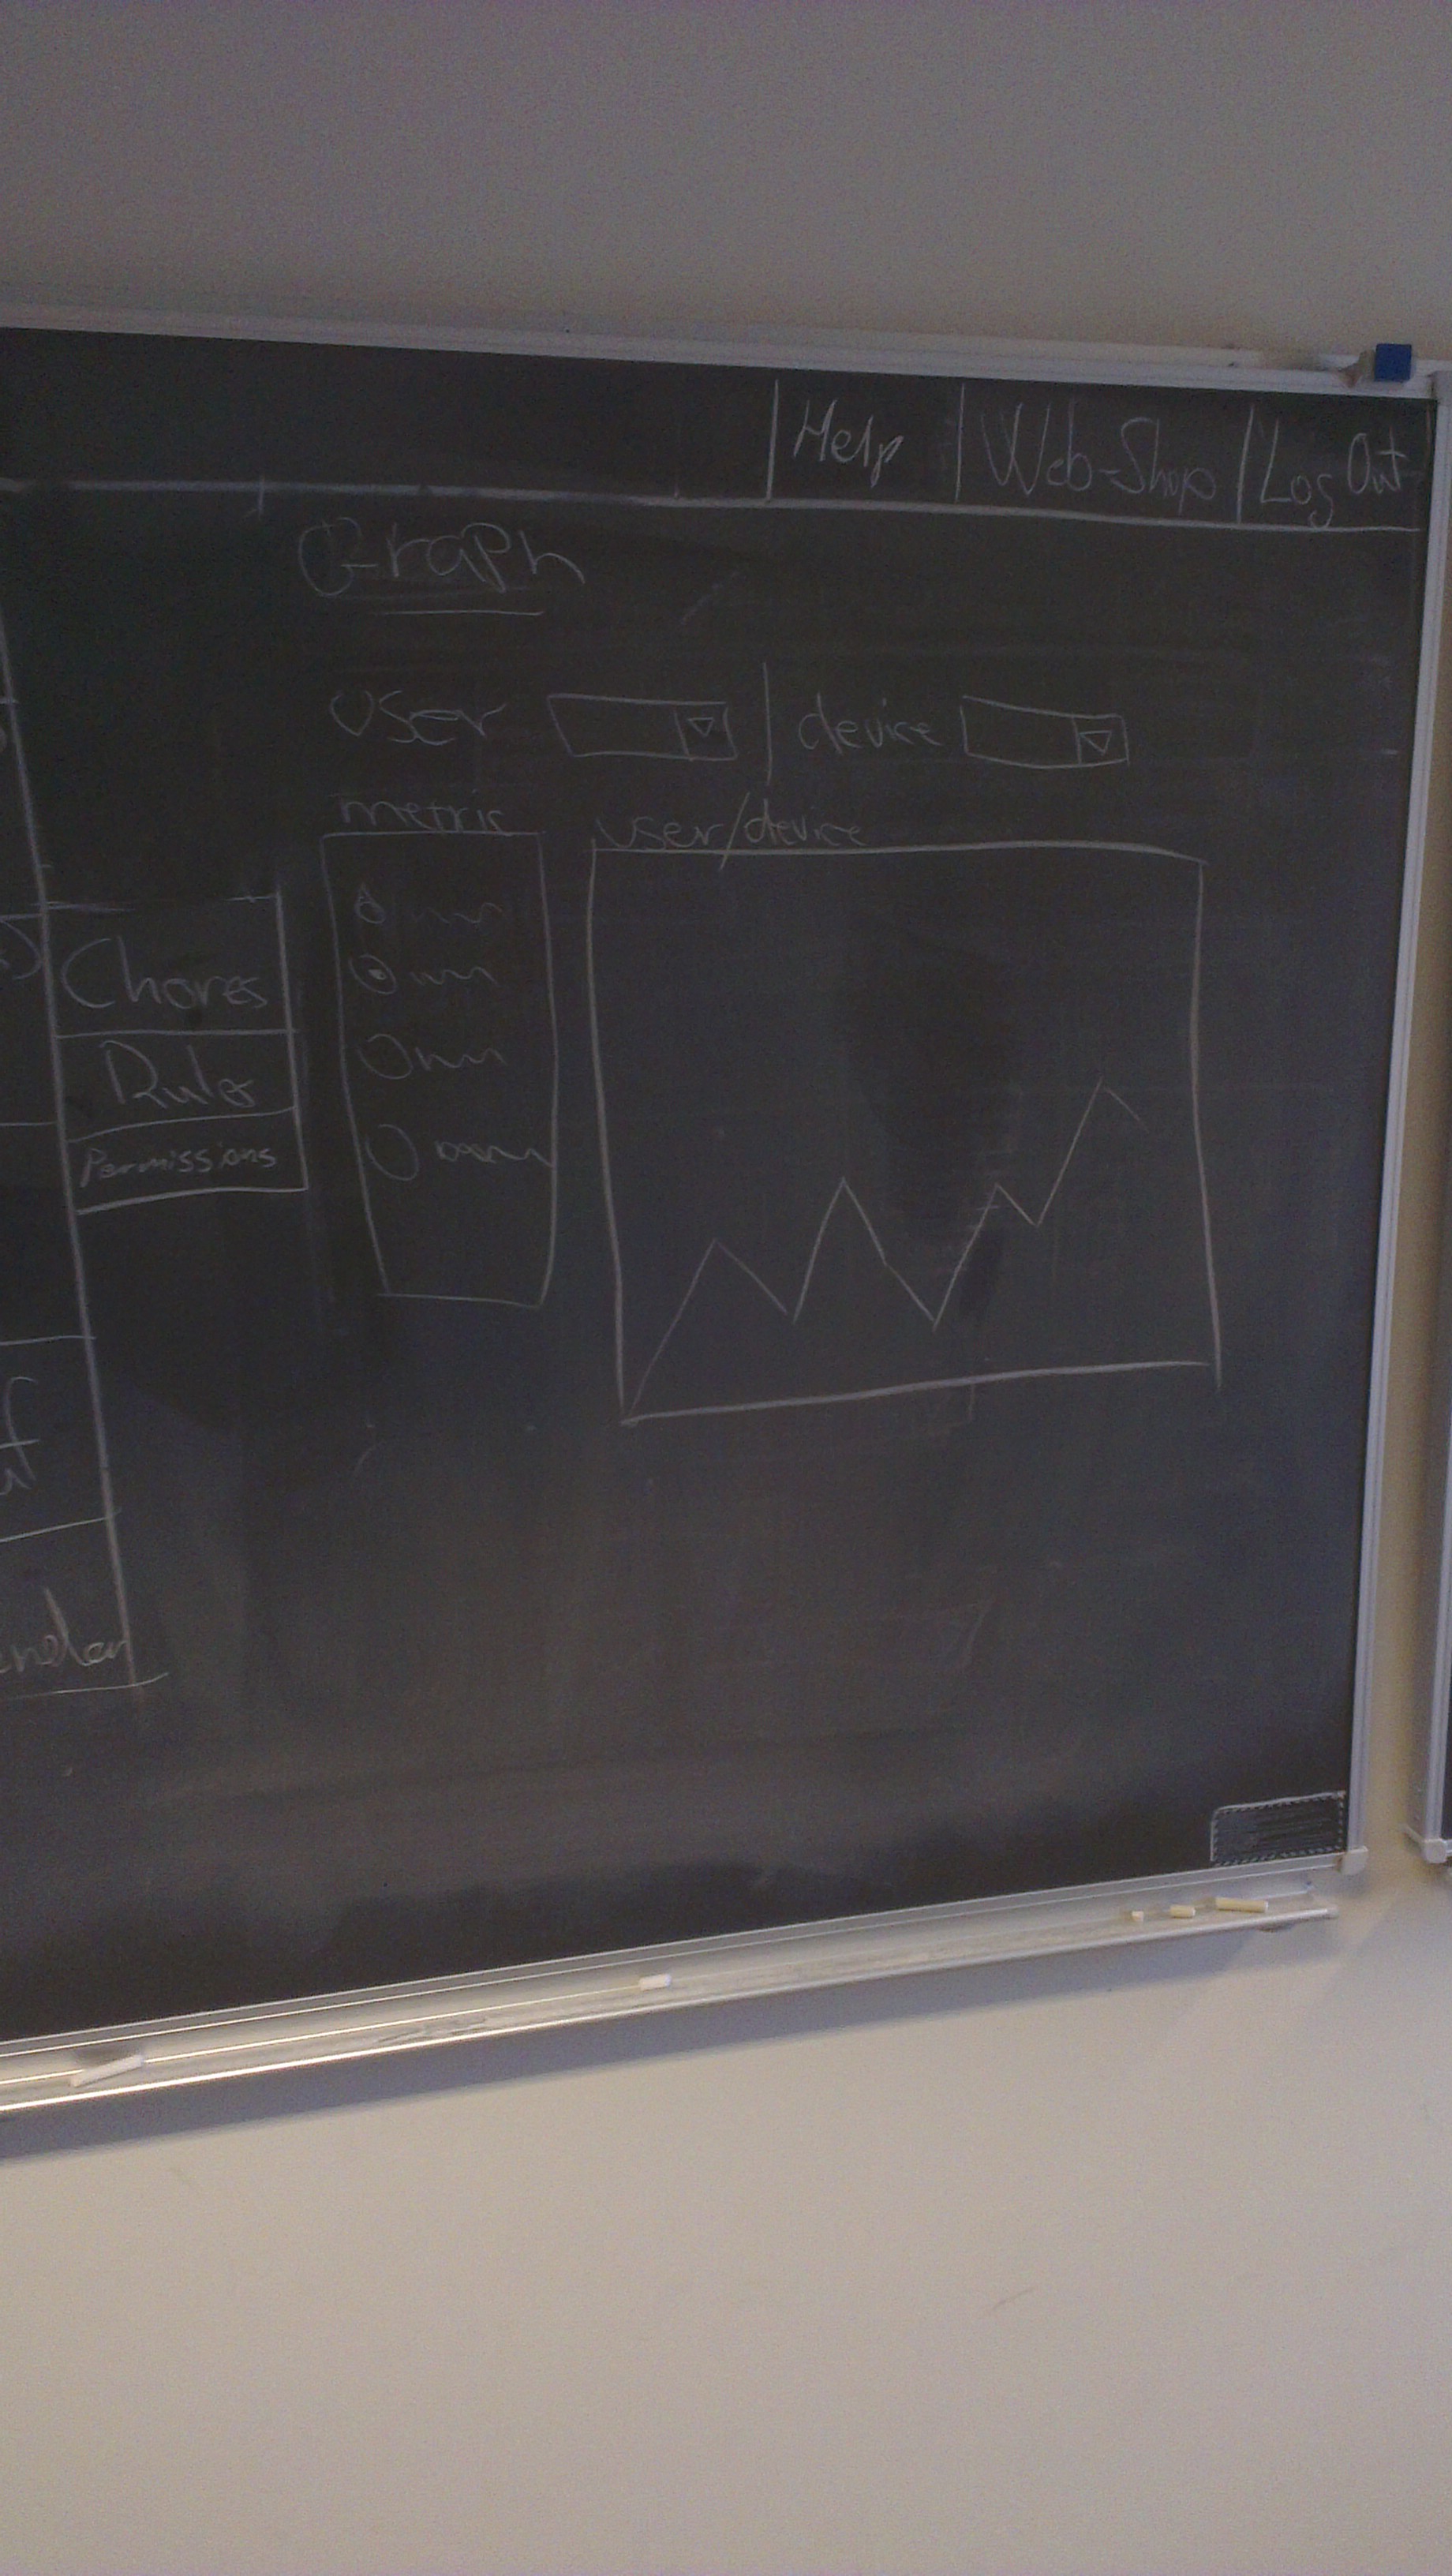 Help | Web-Shop | Log Out
Graph
user | device
metric
user/device
Chores
Rules
Permissions